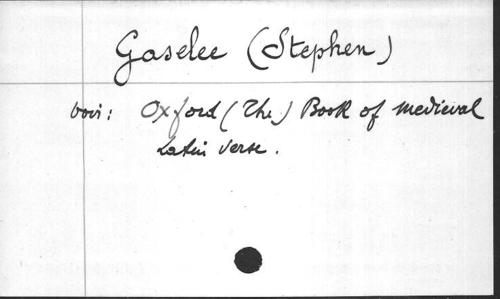 Gaselee (Stephen)
voir: Oxford (The) Book of medieval
Latin verse.